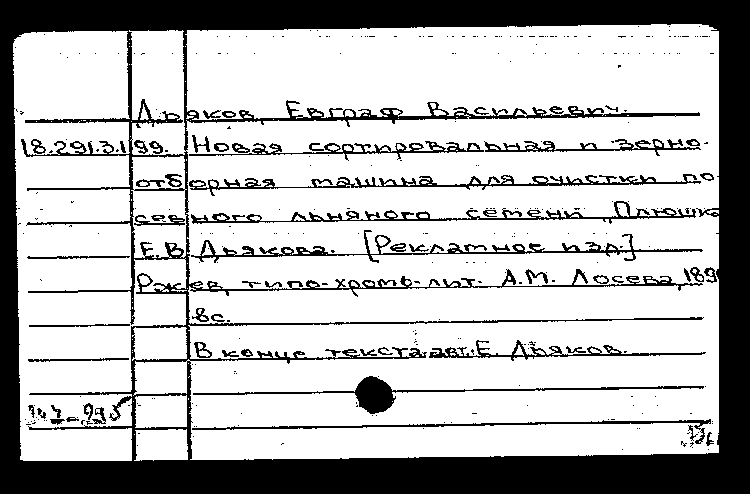 Дьяков, Евграф Васильевич.
18.291.3.199. Новая сортировальная и зерно-
отборная машина для очистки по-
севного льняного семени „Плюшка
Е.В. Дьякова. [Рекламное изд.]
Ржев, типо-хромо-лит. А.М. Лосева, 189
8с.
В конце текста авт. Е. Дьяков.